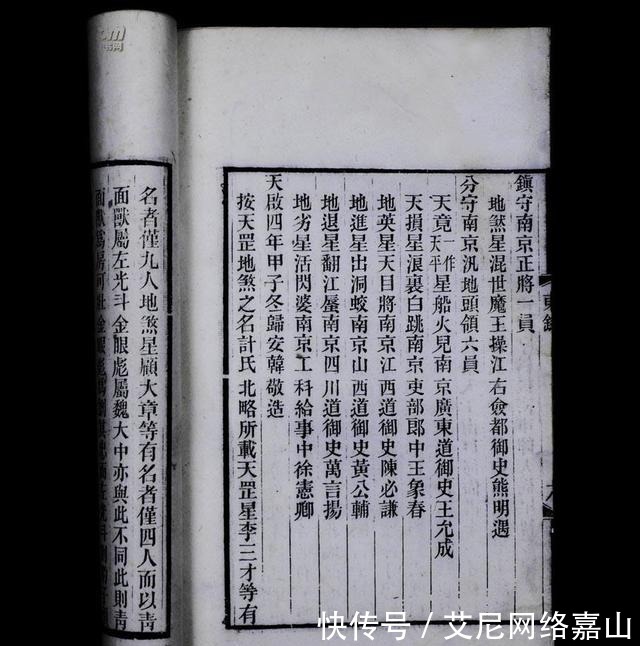 鎮守南京正將一員
地煞星混世魔王操江右僉都御史熊明遇
分守南京汛地頭領六員
天竟一作天平星船火兒南京廣東道御史王允成
天損星浪裏白跳南京吏部郎中王象春
地英星天目將南京江西道御史陳必謙
地進星出洞蛟南京山西道御史黃公輔
地退星翻江蜃南京四川道御史萬言揚
地劣星活閃婆南京工科給事中徐憲卿
天啟四年甲子冬歸安韓敬造
按天罡地煞之名計氏北略所載天罡星李三才等有
名者僅九人地煞星顧大章等有名者僅四人而以青
面獸屬左光斗金眼彪屬魏大中亦與此不同此則青
快传号/艾尼网络嘉山